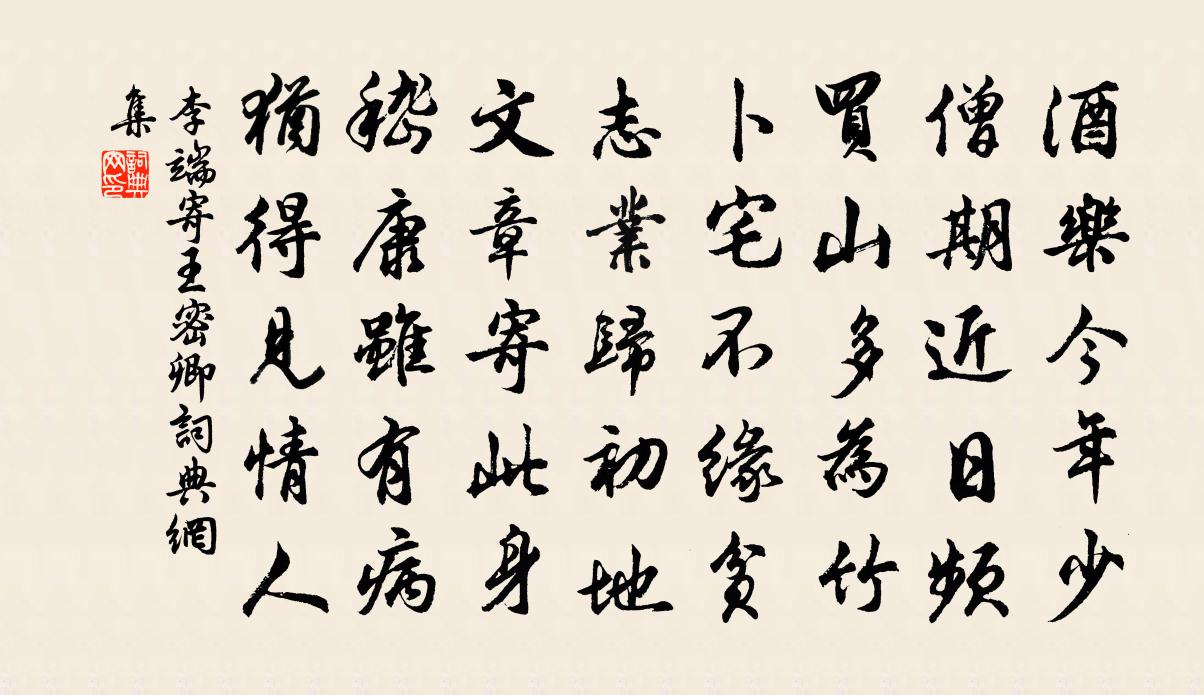 酒樂今年少
僧期近日頻
買山多為竹
卜宅不緣貧
志業歸初地
文章寄此身
嵇康雖有病
猶得見情人
李端寄王密卿詞典網
集
詞典
網印